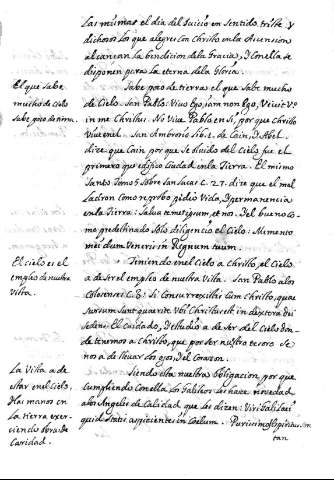 Las mismas el dia del Juicio en Sentido triste y
dichosos los que alegres con Christo en la Ascension
alcançan la bendicion dela Gracia, y Conella se
disponen para la eterna dela Gloria.
El que sabe
mucho de Cielo
sabe poco de tierra.
Sabe poco de tierra el que Sabe mucho
de Cielo. San Pablo: Vivo Ego, iam non Ego, Vivit Vº
in me Christus. No Vive Pablo en si, por que Christo
Vive en el. San Ambrosio Lib. 2. de Cain, y Abel
dize que Cain por que se olvido del Cielo fue el
primero que edifico Ciudad en la Tierra. El mismo
Santo Tomo 5 Sobre San Lucas C. 27. dize que el mal
Ladron como reprobo pidio Vida, y permanencia
en la Tierra: Salva temetipsum, et nos. Y el bueno co-
mo predestinado Solo diligencio el Cielo: Memento
mei dum Veneris in Regnum tuum.
El Cielo es el
empleo de nuestra
Vista.
Teniendo en el Cielo a Christo, el Cielo
a de ser el empleo de nuestra Vista. San Pablo a los
Colosenses C. 3: Si Consurrexistis Cum Christo, quae
sursum Sunt quaerite Vbi Christus est in dextera Dei
sedens. El Cuidado, y estudio a de ser del Cielo don-
de tenemos a Christo, que por ser nuestro tesoro Se
nos a de llevar los ojos, y el Corazon.
La Vista a de
estar en el Cielo,
y las manos en
la tierra exer-
ciendo obras de
Caridad.
Siendo esta nuestra obligacion, por que
Cumpliendo Conella los Galileos les hace novedad
a los Angeles de Calidad que les dizen: Viri Galilaei
quid Statis aspicientes in Coelum. Purissimos Espiritus
tan